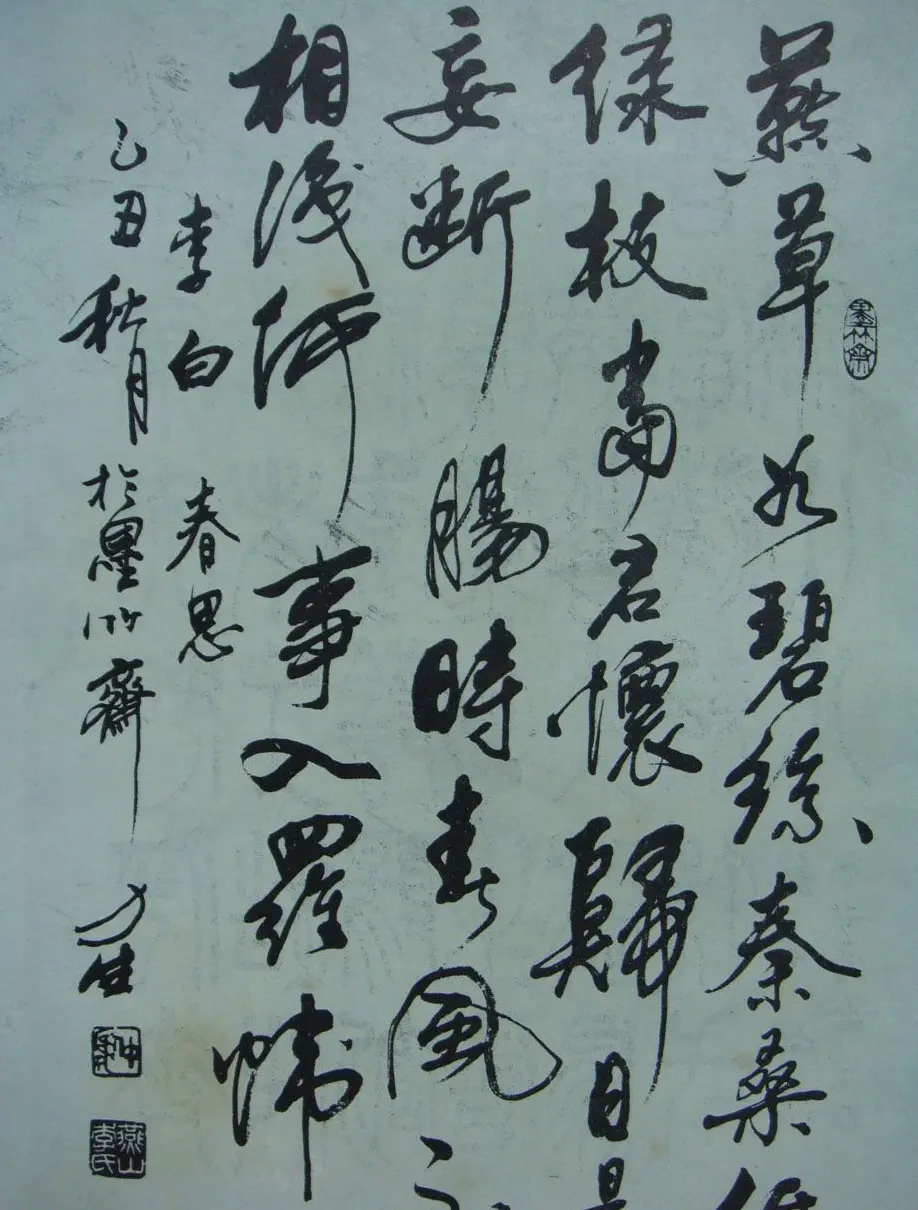 墨竹齋
燕草如碧絲秦桑低
綠枝當君懷歸日是
妾斷腸時春風不
相識何事入羅幃
李白 春思
乙丑秋月於墨竹齋 力生
燕山李氏